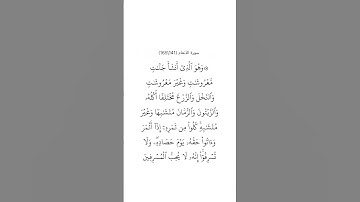 سورة الأنعام (141/165)
۞وَهُوَ ٱلَّذِىٓ أَنشَأَ جَنَّـٰتٍ
مَّعْرُوشَـٰتٍ وَغَيْرَ مَعْرُوشَـٰتٍ
وَٱلنَّخْلَ وَٱلزَّرْعَ مُخْتَلِفًا أُكُلُهُۥ
وَٱلزَّيْتُونَ وَٱلرُّمَّانَ مُتَشَـٰبِهًا وَغَيْرَ
مُتَشَـٰبِهٍ ۚ كُلُوا۟ مِن ثَمَرِهِۦٓ إِذَآ أَثْمَرَ
وَءَاتُوا۟ حَقَّهُۥ يَوْمَ حَصَادِهِۦ ۖ وَلَا
تُسْرِفُوٓا۟ ۚ إِنَّهُۥ لَا يُحِبُّ ٱلْمُسْرِفِينَ